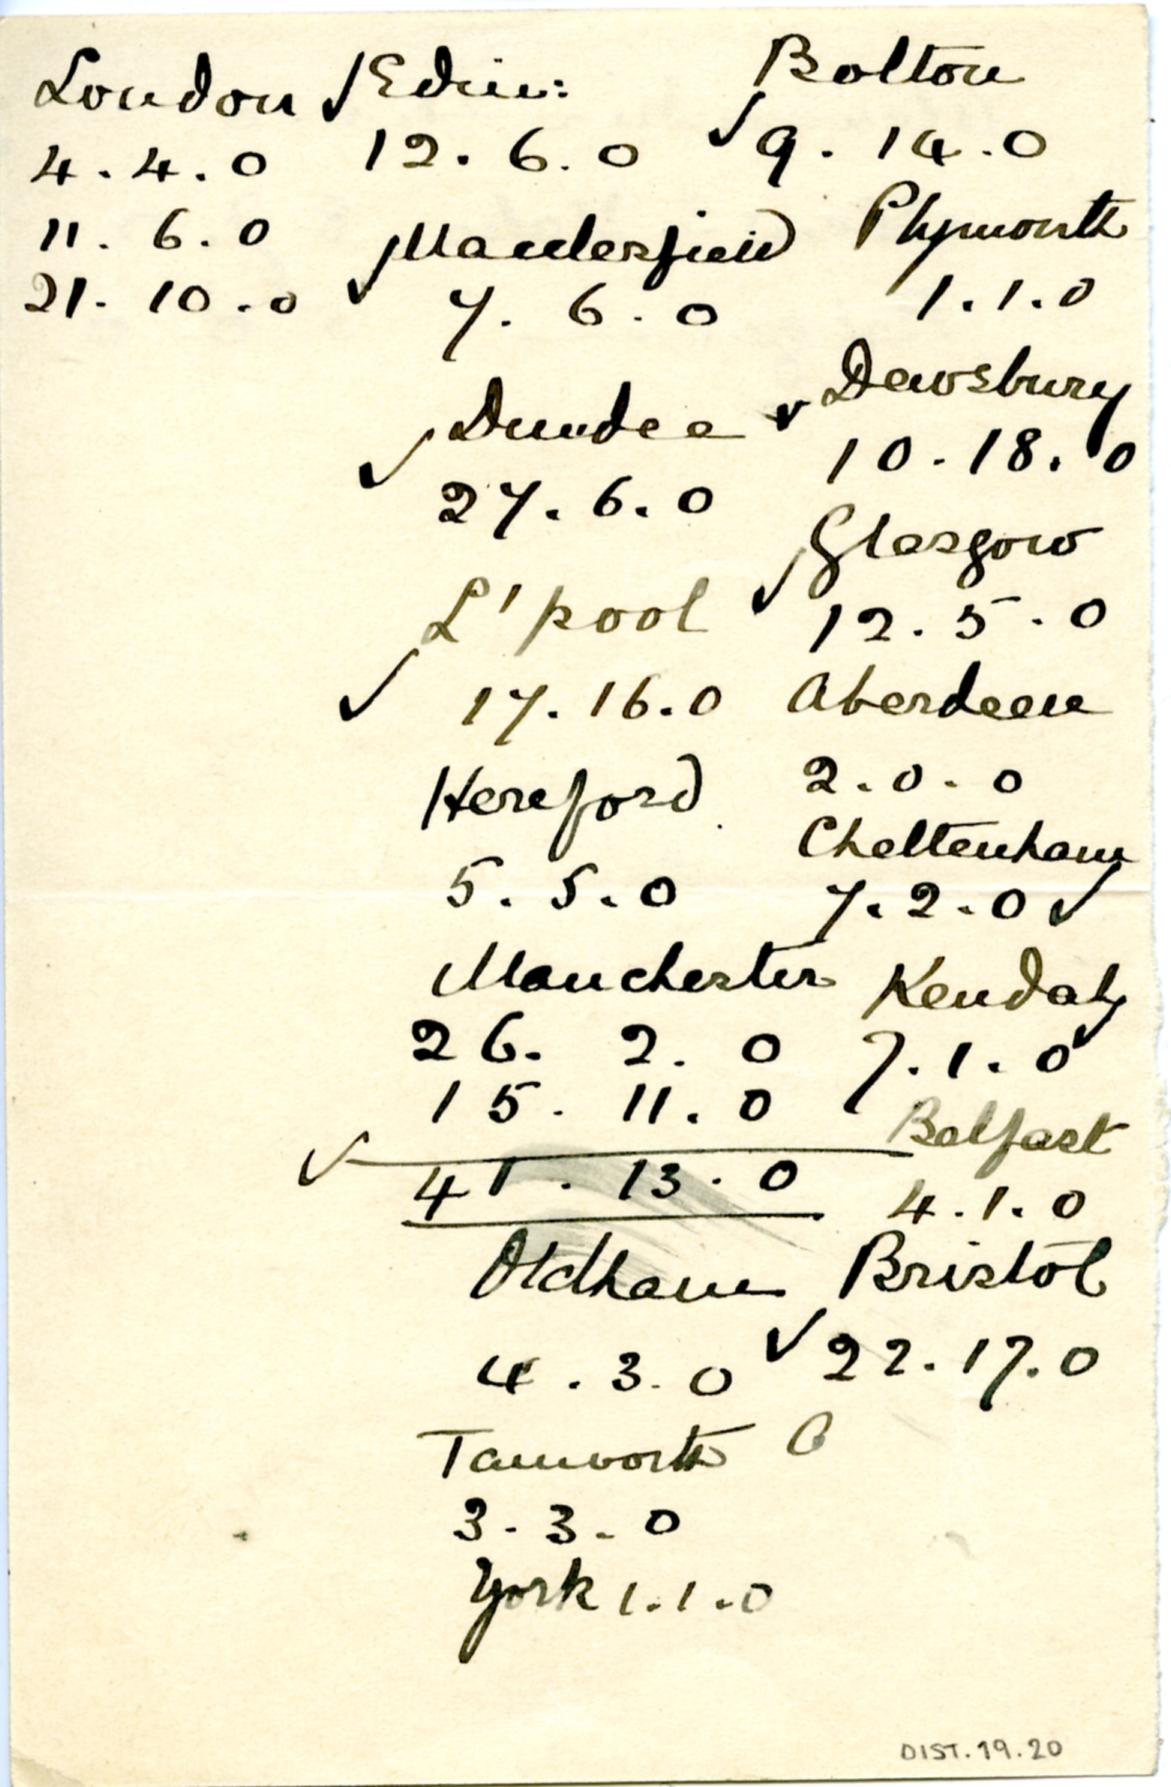 London
4.4.0
11.6.0
21.10.0
✓Edin:
12.6.0
✓
7.6.0
✓Dundee
27.6.0
L'pool
✓ 17.16.0
Hereford
5.5.0
Manchester
26. 2. 0
15. 11. 0
✓ 41. 13. 0
Oldham
4.3.0
Tamworth
3.3.0
York 1.1.0
Bolton
✓9.14.0
Plymouth
1.1.0
✓Dewsbury
10.18.0
✓Glasgow
12.5.0
Aberdeen
2.0.0
Cheltenham
7.2.0 ✓
Kendal ✓
7.1.0
Belfast
4.1.0
Bristol
✓22.17.0
DIST.19.20